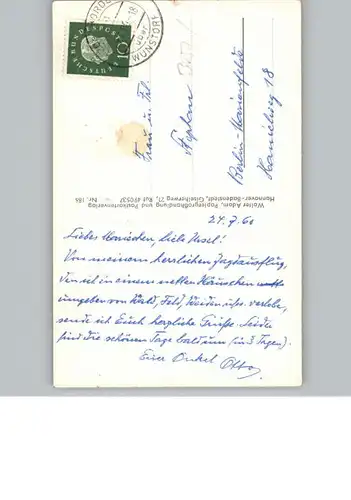 DEUTSCHE BUNDESPOST
10
WUNSTORF
über
Frau u. Frl.
Stephan
Berlin-Marienfelde
Hanielweg 18
Walter Adam, Papiergroßhandlung und Postkartenverlag
Hannover-Badenstedt, Giselherweg 21, Ruf 490537
Nr. 184
24.7.60
Liebes Mariechen, liebe Ursel!
Von meinem herrlichen Jagdausflug,
den ich in einem netten Häuschen
umgeben von Wald, Feld, Weiden usw. verlebe,
sende ich Euch herzliche Grüße. Leider
sind die schönen Tage bald um (in 3 Tagen).
Euer Onkel Otto